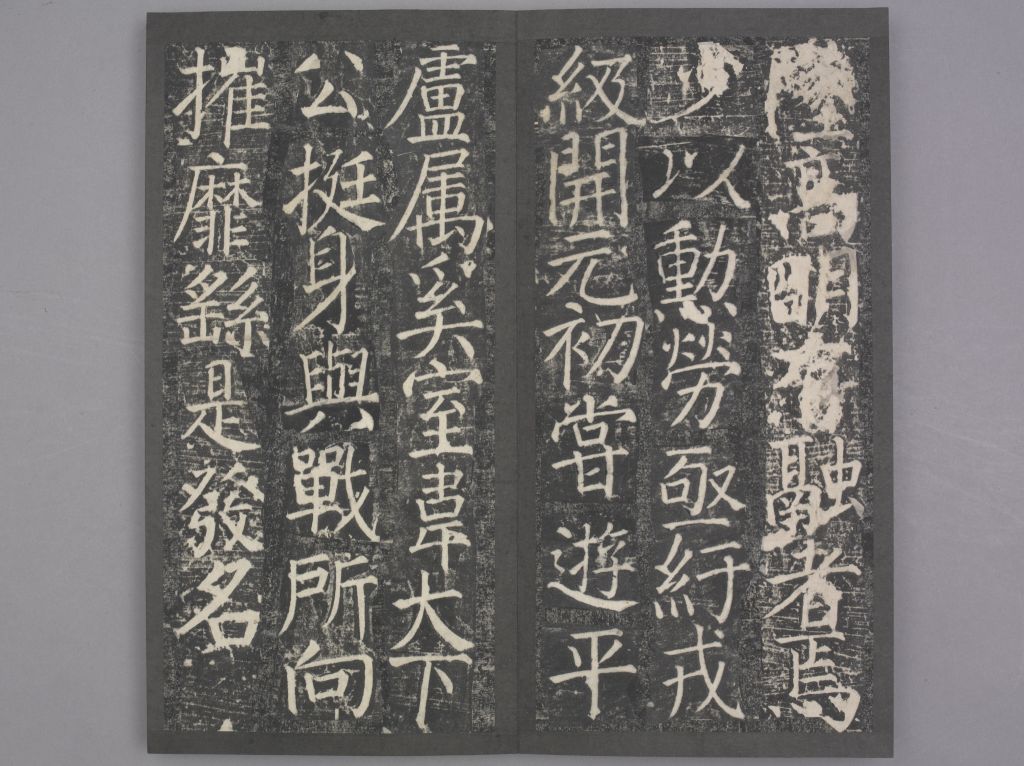 隆高明有融者焉
少以勲勞亟紆戎
級開元初嘗遊平
盧属奚室韋大下
公挺身與戰所向
摧靡繇是發名